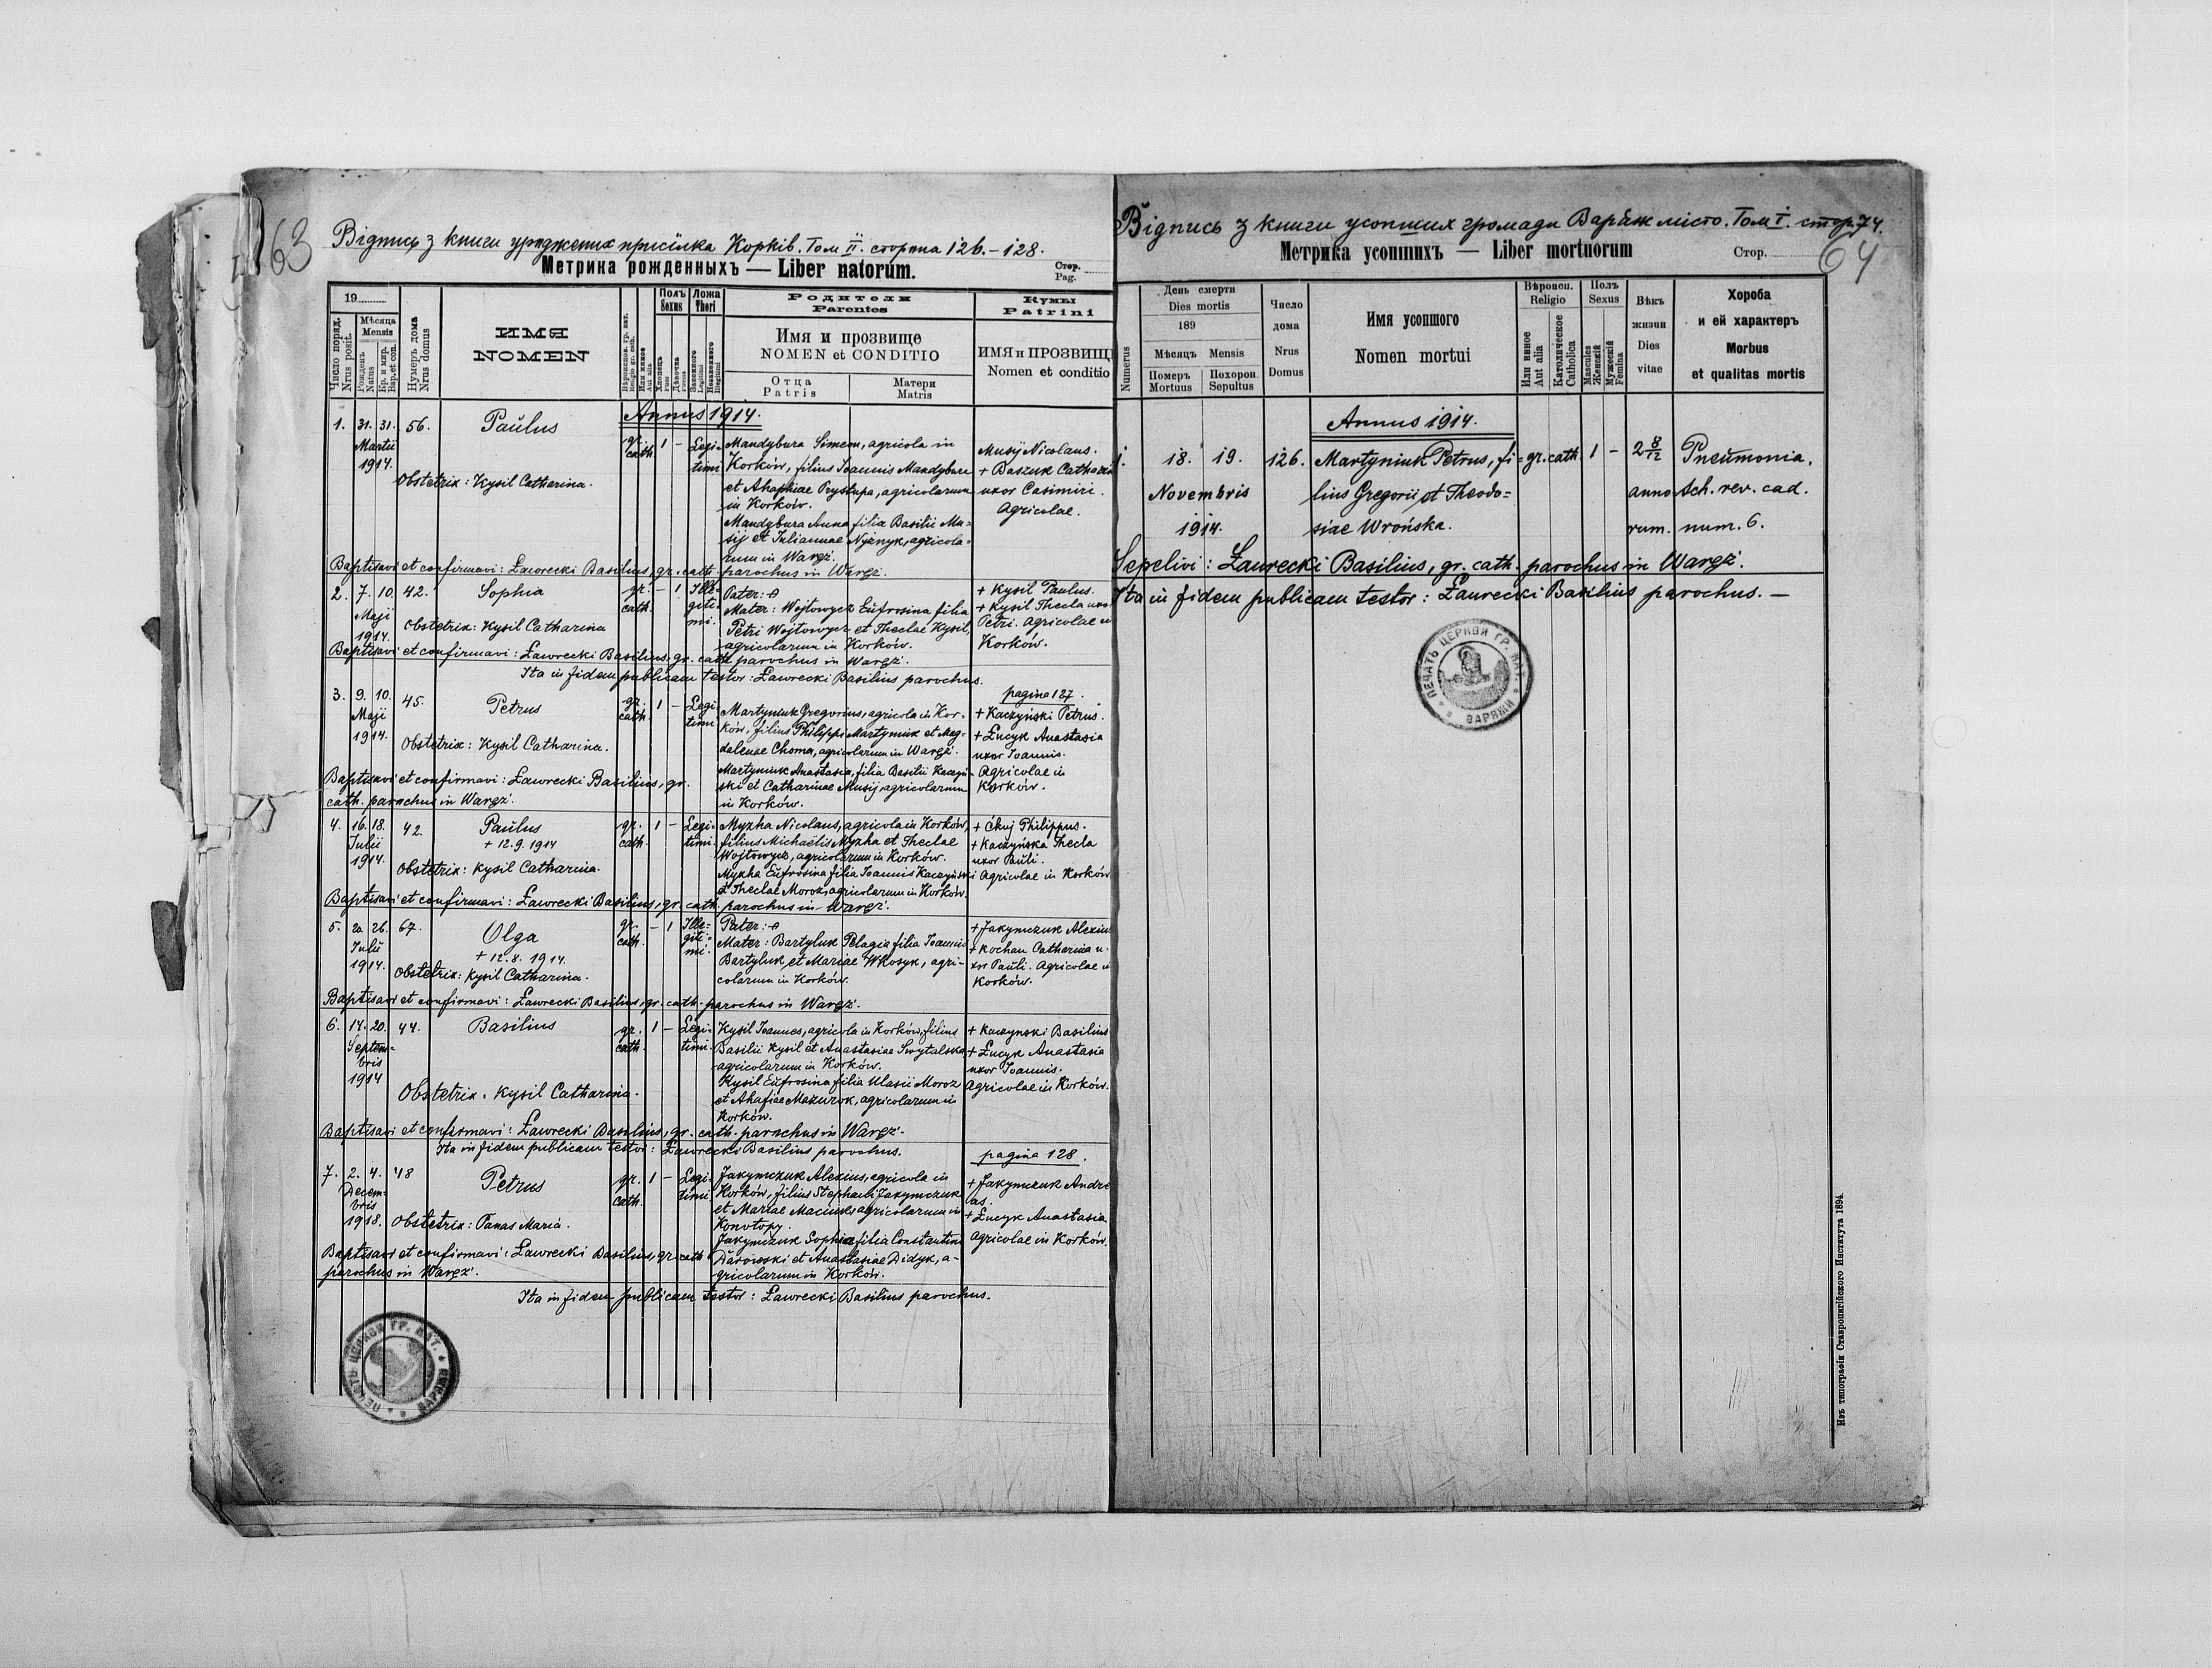 63
Відпись з книги уроджених присілка Корків. Том II. сторона 126.-128.
Метрика рожденныхъ — Liber natorum.
Стор.
Pag.
19
Число поряд.
Nrus posit.
Мѣсяца
Mensis
Рожденъ
Natus
Кр. и мир.
Bap. et con.
Нумеръ дома
Nrus domus
ИМЯ
NOMEN
Или инное
Aut alia
Полъ
Sexus
Ложа
Thori
Родители
Parentes
Имя и прозвище
NOMEN et CONDITIO
Отца
Patris
Матери
Matris
Кумы
Patrini
ИМЯ и ПРОЗВИЩ
Nomen et conditio
Annus 1914.
1. 31. 31. 56. Paŭlus gr. cath. 1 - Legi-
timi
Martii
1914.
Obstetrix: Kysil Catharina.
Mandybura Simeon, agricola in
Korków, filius Ioannis Mandybura
et Ahaphiae Prystupa, agricolarum
in Korków.
Mandybura Anna filia Basilii Mu-
sij et Iuliannae Nyznyk, agricola-
rum in Waręż.
Musij Nicolaus.
+ Baszuk Cathari
uxor Casimiri.
Agricolae.
Baptisavi et confirmavi: Ławrecki Basilius, gr. cath. parochus in Waręż.
2. 7. 10. 42. Sophia gr. cath. - 1 Ille-
giti-
mi.
Maji
1914.
Obstetrix: Kysil Catharina
Pater:
Mater: Wojtowycz Eŭfrosina filia
Petri Wojtowycz et Theclae Kysil,
agricolarum in Korków.
+ Kysil Paulus.
+ Kysil Thecla uxo
Petri. Agricolae i
Korków.
Baptisavi et confirmavi: Ławrecki Basilius, gr. cath. parochus in Waręż.
Ita in fidem publicam testor: Ławrecki Basilius parochus.
pagina 127.
3. 9. 10. 45. Petrus gr. cath. 1 - Legi-
timi
Maji
1914.
Obstetrix: Kysil Catharina.
Martyniuk Gregorius, agricola in Kor-
ków, filius Philippi Martyniuk et Mag-
dalenae Choma, agricolarum in Waręż.
Martyniuk Anastasia, filia Basilii Kaczyń-
ski et Catharinae Musij agricolarum
in Korków.
+ Kaczyński Petrus.
+ Łucyk Anastasia
uxor Ioannis.
Agricolae in
Korków.
Baptisavi et confirmavi: Ławrecki Basilius, gr.
cath. parochus in Waręż.
4. 16. 18. 42. Paŭlus gr. cath. 1 - Legi-
timi.
+ 12.9.1914
Iulii
1914.
Obstetrix: Kysil Catharina.
Myzha Nicolaus, agricola in Korków,
filius Michaëlis Myzha et Theclae
Wojtowycz, agricolarum in Korków.
Myzha Eŭfrosina filia Ioannis Kaczyński
et Theclae Moroz, agricolarum in Korków.
+ Ćkuj Philippus.
+ Kaczyńska Thecla
uxor Paŭli.
Agricolae in Korków
Baptisavi et confirmavi: Ławrecki Basilius, gr. cath. parochus in Waręż.
5. 20. 26. 67. Olga gr. cath. - 1 Ille-
giti-
mi.
+ 12.8.1914.
Iulii
1914.
Obstetrix: Kysil Catharina.
Pater:
Mater: Bartyluk Pelagia filia Ioannis
Bartyluk et Mariae Wkosyk, agri-
colarum in Korków.
+ Jakymczuk Alexius
+ Kochan Catharina u-
xor Paŭli. Agricolae i
Korków.
Baptisavi et confirmavi: Ławrecki Basilius, gr. cath. parochus in Waręż.
6. 14. 20. 44. Basilius gr. cath. 1 - Legi-
timi.
Septem-
bris
1914
Obstetrix. Kysil Catharina.
Kysil Ioannes, agricola in Korków, filius
Basilii Kysil et Anastasiae Swytalska
agricolarum in Korków.
Kysil Eŭfrosina filia Ulasii Moroz
et Ahafiae Mazurok, agricolarum in
Korków.
+ Kaczynski Basilius
+ Łucyk Anastasia
uxor Ioannis.
Agricolae in Korków.
Baptisavi et confirmavi: Ławrecki Basilius, gr. cath. parochus in Waręż.
Ita in fidem publicam testor: Ławrecki Basilius parochus.
pagina 128.
7. 2. 4. 48 Petrus gr. cath. 1 - Legi-
timi
Decem-
bris
1918.
Obstetrix: Panas Maria.
Jakymczuk Alexius, agricola in
Korków, filius Stephani Jakymczuk
et Mariae Maciuk, agricolarum in
Konotopy.
Jakymczuk Sophia filia Constantini
Darowski et Anastasiae Didyk, a-
gricolarum in Korków.
+ Jakymczuk Andre
as.
+ Łucyk Anastasia
Agricolae in Korków.
Baptisavi et confirmavi: Ławrecki Basilius, gr. cath.
parochus in Waręż.
Ita in fidem publicam testor: Ławrecki Basilius parochus.
ПЕЧАТЬ ЦЕРКВИ ГР. КАТ. ВАРЯЖИ
Відпись з книги усопших громади Варяж місто. Том I. стор. 74.
Метрика усопшихъ — Liber mortuorum
Стор.
64
Numerus
День смерти
Dies mortis
189
Мѣсяцъ Mensis
Померъ
Mortuus
Похорон.
Sepultus
Число
дома
Nrus
Domus
Имя усопшого
Nomen mortui
Вѣроиси.
Religio
Или инное
Aut alia
Католическое
Catholica
Полъ
Sexus
Mascules
Женскій
Мужескій
Femina
Вѣкъ
жизни
Dies
vitae
Хороба
и ей характеръ
Morbus
et qualitas mortis
Annus 1914.
1. 18. 19. 126. Martyniuk Petrus, fi- gr. cath 1 - 2 8/12 Pneŭmonia.
Novembris lius Gregorii et Theodo- anno Ach. rev. cad.
1914. siae Wrońska. rum. num. 6.
Sepelivi: Ławrecki Basilius, gr. cath. parochus in Waręż.
Ita in fidem publicam testor: Ławrecki Basilius parochus. —
ПЕЧАТЬ ЦЕРКВИ ГР. КАТ. ВАРЯЖИ
Изъ типографіи Ставропигійского Института 1894.